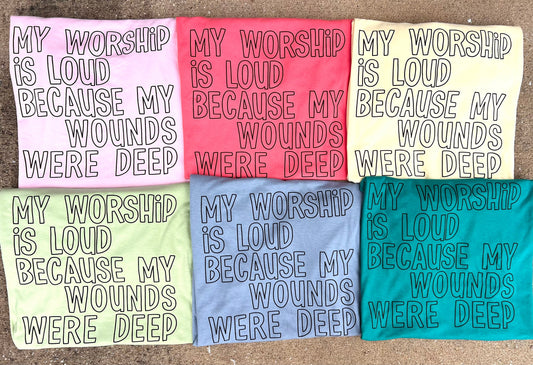 MY WORSHiP
iS LOUD
BECAUSE MY
WOUNDS
WERE DEEP
MY WORSHiP
iS LOUD
BECAUSE MY
WOUNDS
WERE DEEP
MY WORSHiP
iS LOUD
BECAUSE MY
WOUNDS
WERE DEEP
MY WORSHiP
iS LOUD
BECAUSE MY
WOUNDS
WERE DEEP
MY WORSHiP
iS LOUD
BECAUSE MY
WOUNDS
WERE DEEP
MY WORSHiP
iS LOUD
BECAUSE MY
WOUNDS
WERE DEEP